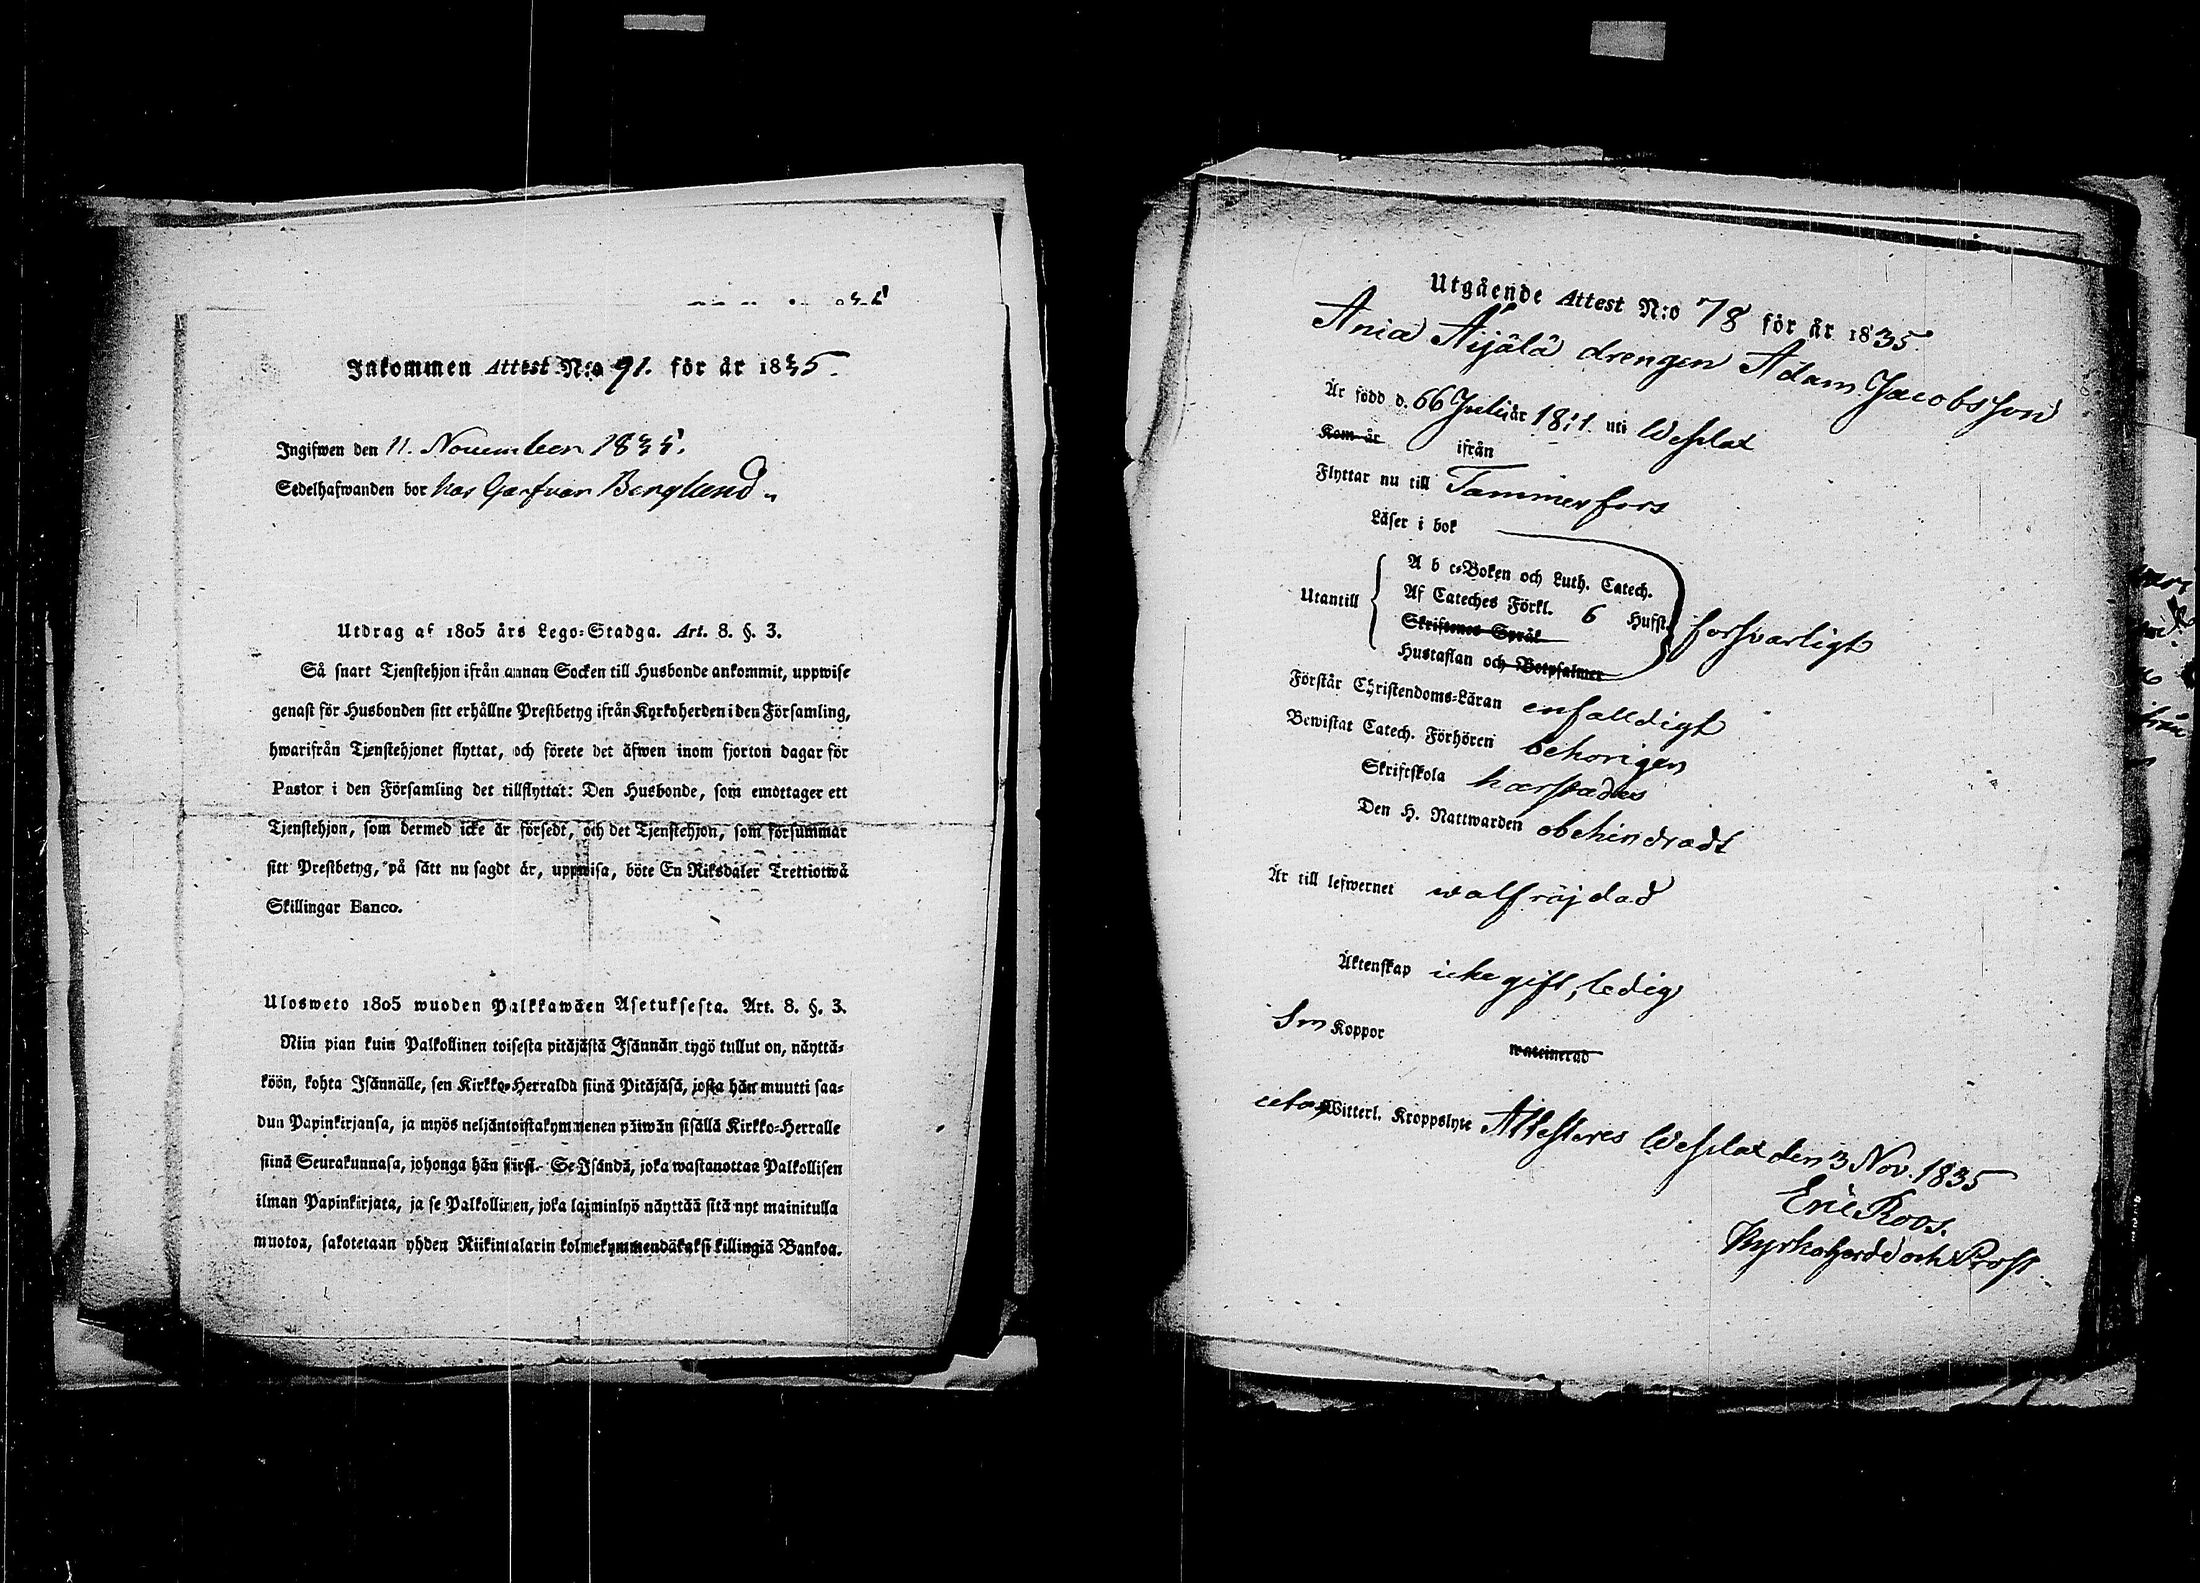 Inkommen Attest N:o 91. för år 1835.
Ingifwen den 11. November 1835.
Sedelhafwanden bor hos Garfvar Berglund.
Utdrag af 1805 års Lego-Stadga. Art. 8. §. 3.
Så snart Tjenstehjon ifrån annan Socken till Husbonde ankommit, uppwise
genast för Husbonden sitt erhållne Prestbetyg ifrån Kyrkoherden i den Församling,
hwarifrån Tjenstehjonet flyttat, och förete det äfwen inom fjorton dagar för
Pastor i den Församling det tillflyttat: Den Husbonde, som emottager ett
Tjenstehjon, som dermed icke är försedt, och det Tjenstehjon, som försummar
sitt Prestbetyg, på sätt nu sagdt är, uppwisa, böte En Riksdaler Trettiotwå
Skillingar Banco.
Ulosweto 1805 wuoden Palkkawäen Asetuksesta. Art. 8. §. 3.
Niin pian kuin Palkollinen toisesta pitäjästä Isännän tygö tullut on, näyttä-
köön, kohta Isännälle, sen Kirkko-Herralda siinä Pitäjäsä, josta hän muutti saa-
dun Papinkirjansa, ja myös neljäntoistakymmenen päiwän sisällä Kirkko-Herralle
siinä Seurakunnasa, johonga hän siirsi. Se Isändä, joka wastanottaa Palkollisen
ilman Papinkirjata, ja se Palkollinen, joka laiminlyö näyttää sitä nyt mainitulla
muotoa, sakotetaan yhden Riikintalarin kolmekymmendäkaksi killingiä Bankoa.
Utgående Attest N:o 78 för år 1835
Ania Äijälä drengen Adam Jacobsson
Är född d. 66 Julii år 1811 uti Wesilax
Kom år ifrån
Flyttar nu till Tammerfors
Läser i bok
A b c-Boken och Luth. Catech.
Utantill Af Cateches Förkl. 6 Hufst.
Skriftenes Språk försvarligt
Hustaflan och Botpsalmer
Förstår Christendoms-Läran enfalldigt
Bewistat Catech. Förhören behörigen
Skriftskola härstädes
Den H. Nattwarden obehindradt
Är till lefwernet walfräjdad
Äktenskap icke gift, ledig
Koppor
wateinerad
utan Witterl. Kroppslyte Attesteres Wesilax den 3 Nov. 1835
Eric Roos.
Kyrkoherde och Prost.